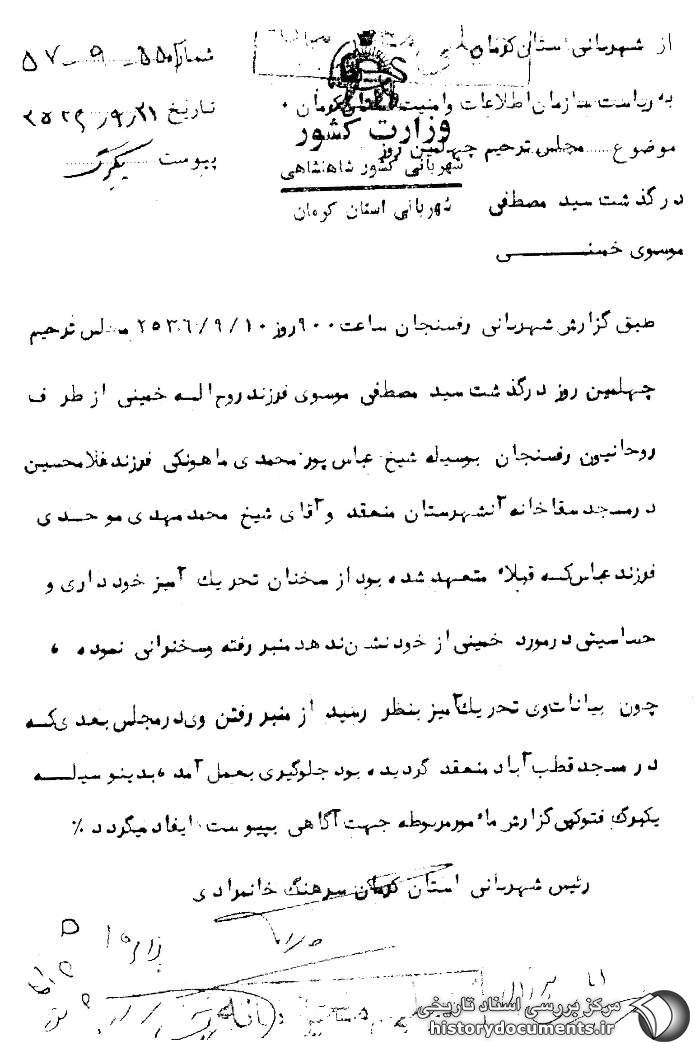 از شهربانی استان کرمان
به ریاست سازمان اطلاعات و امنیت استان کرمان ۰
موضوع مجلس ترحیم چهلمین روز
درگذشت سید مصطفی
موسوی خمینی
وزارت کشور
شهربانی کشور شاهنشاهی
شهربانی استان کرمان
شماره ۵۵ - ۹ - ۵۷
تاریخ ۲۱ر۹ر۲۵۳۶
پیوست یکبرگ
طبق گزارش شهربانی رفسنجان ساعت ۹۰۰ روز ۱۰ / ۹ / ۲۵۳۶ مجلس ترحیم
چهلمین روز درگذشت سید مصطفی موسوی فرزند روح اله خمینی از طرف
روحانیون رفسنجان بوسیله شیخ عباس پورمحمدی ماهونکی فرزند غلامحسین
درمسجد سقاخانه آنشهرستان منعقد و آقای شیخ محمد مهدی موحدی
فرزند عباس که قبلاً متعهد شده بود از سخنان تحریک آمیز خودداری و
حساسیتی درمورد خمینی از خود نشان ندهد منبر رفته وسخنرانی نموده ،
چون بیانات وی تحریک آمیز بنظر رسید از منبر رفتن وی در مجلس بعدی که
در مسجد قطب آباد منعقد گردیده بود جلوگیری بعمل آمد ، بدینوسیله
یکبرگ فتوکپی گزارش مأمور مربوطه جهت آگاهی بپیوست ایفاد میگردد ٪
رئیس شهربانی استان کرمان سرهنگ خانمرادی
مرکز بررسی اسناد تاریخی
historydocuments.ir